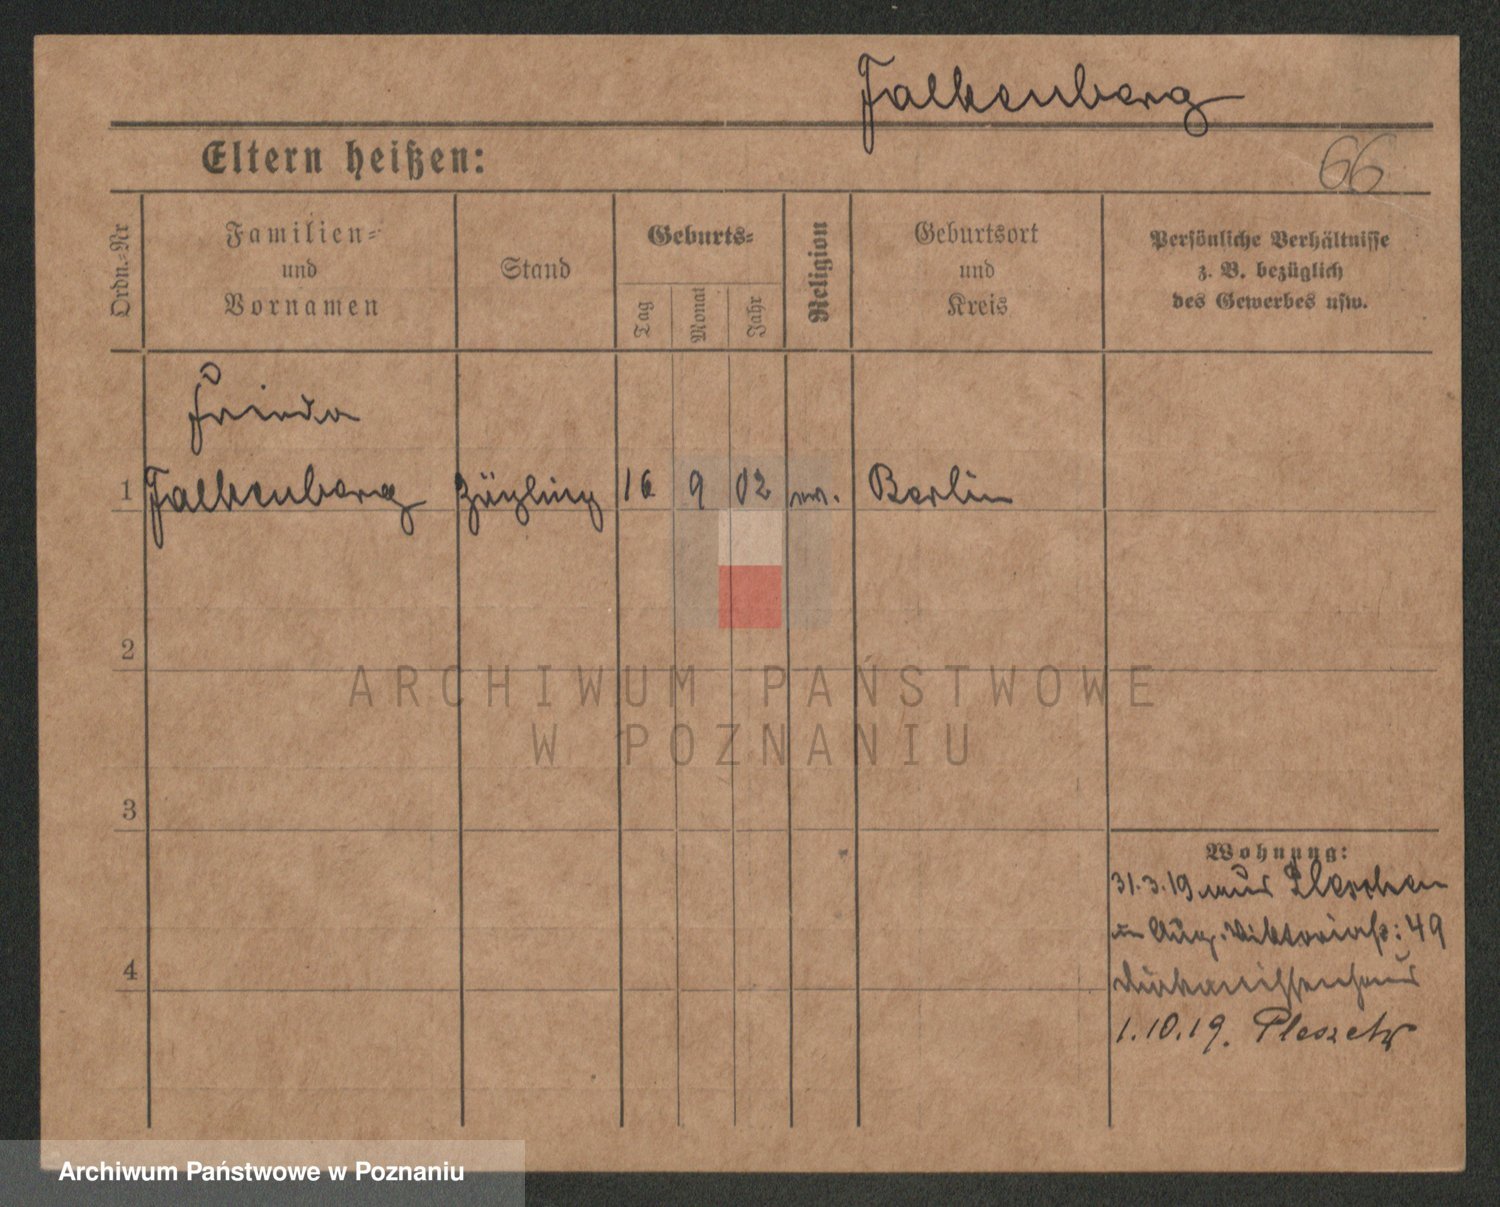 Falkenberg
Eltern heißen:
66
Ordn.-Nr
Familien-
und
Vornamen
Stand
Geburts-
Tag
Monat
Jahr
Religion
Geburtsort
und
Kreis
Persönliche Verhältnisse
z. B. bezüglich
des Gewerbes usw.
Frieda
1 Falkenberg Zögling 16 9 02 ev. Berlin
2
ARCHIWUM PAŃSTWOWE
W POZNANIU
3
Wohnung:
31.3.19 aus Pleschen
Aug. Viktoriastr: 49
4
Diakonissenhaus
1.10.19. Pleszew
Archiwum Państwowe w Poznaniu